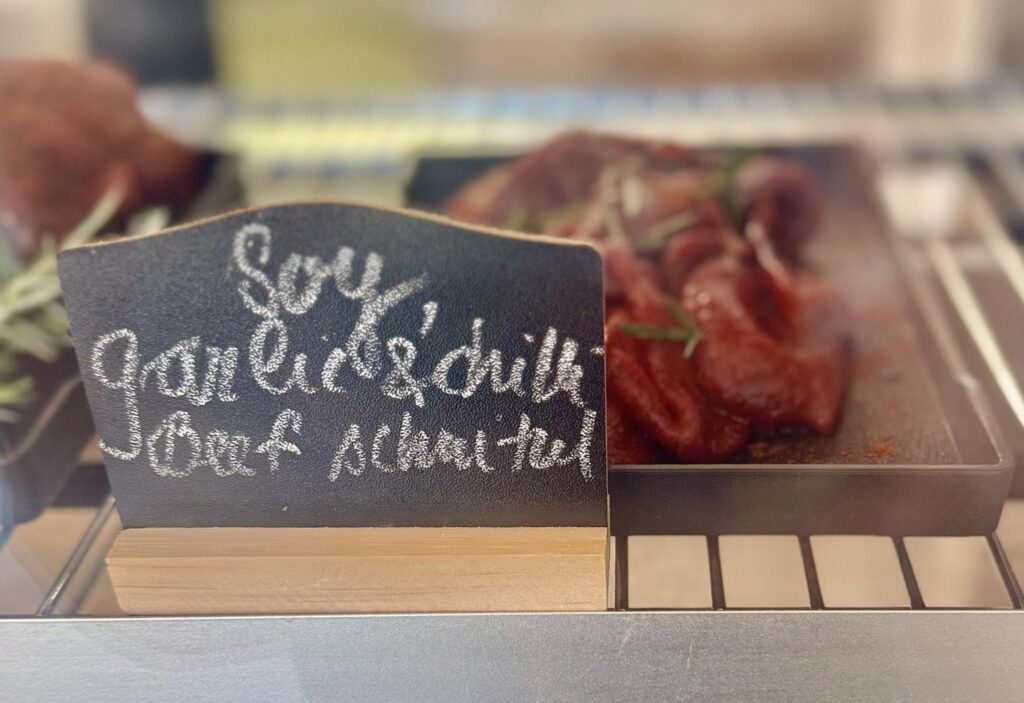 Soy,
garlic & chilli
Beef schnitzel